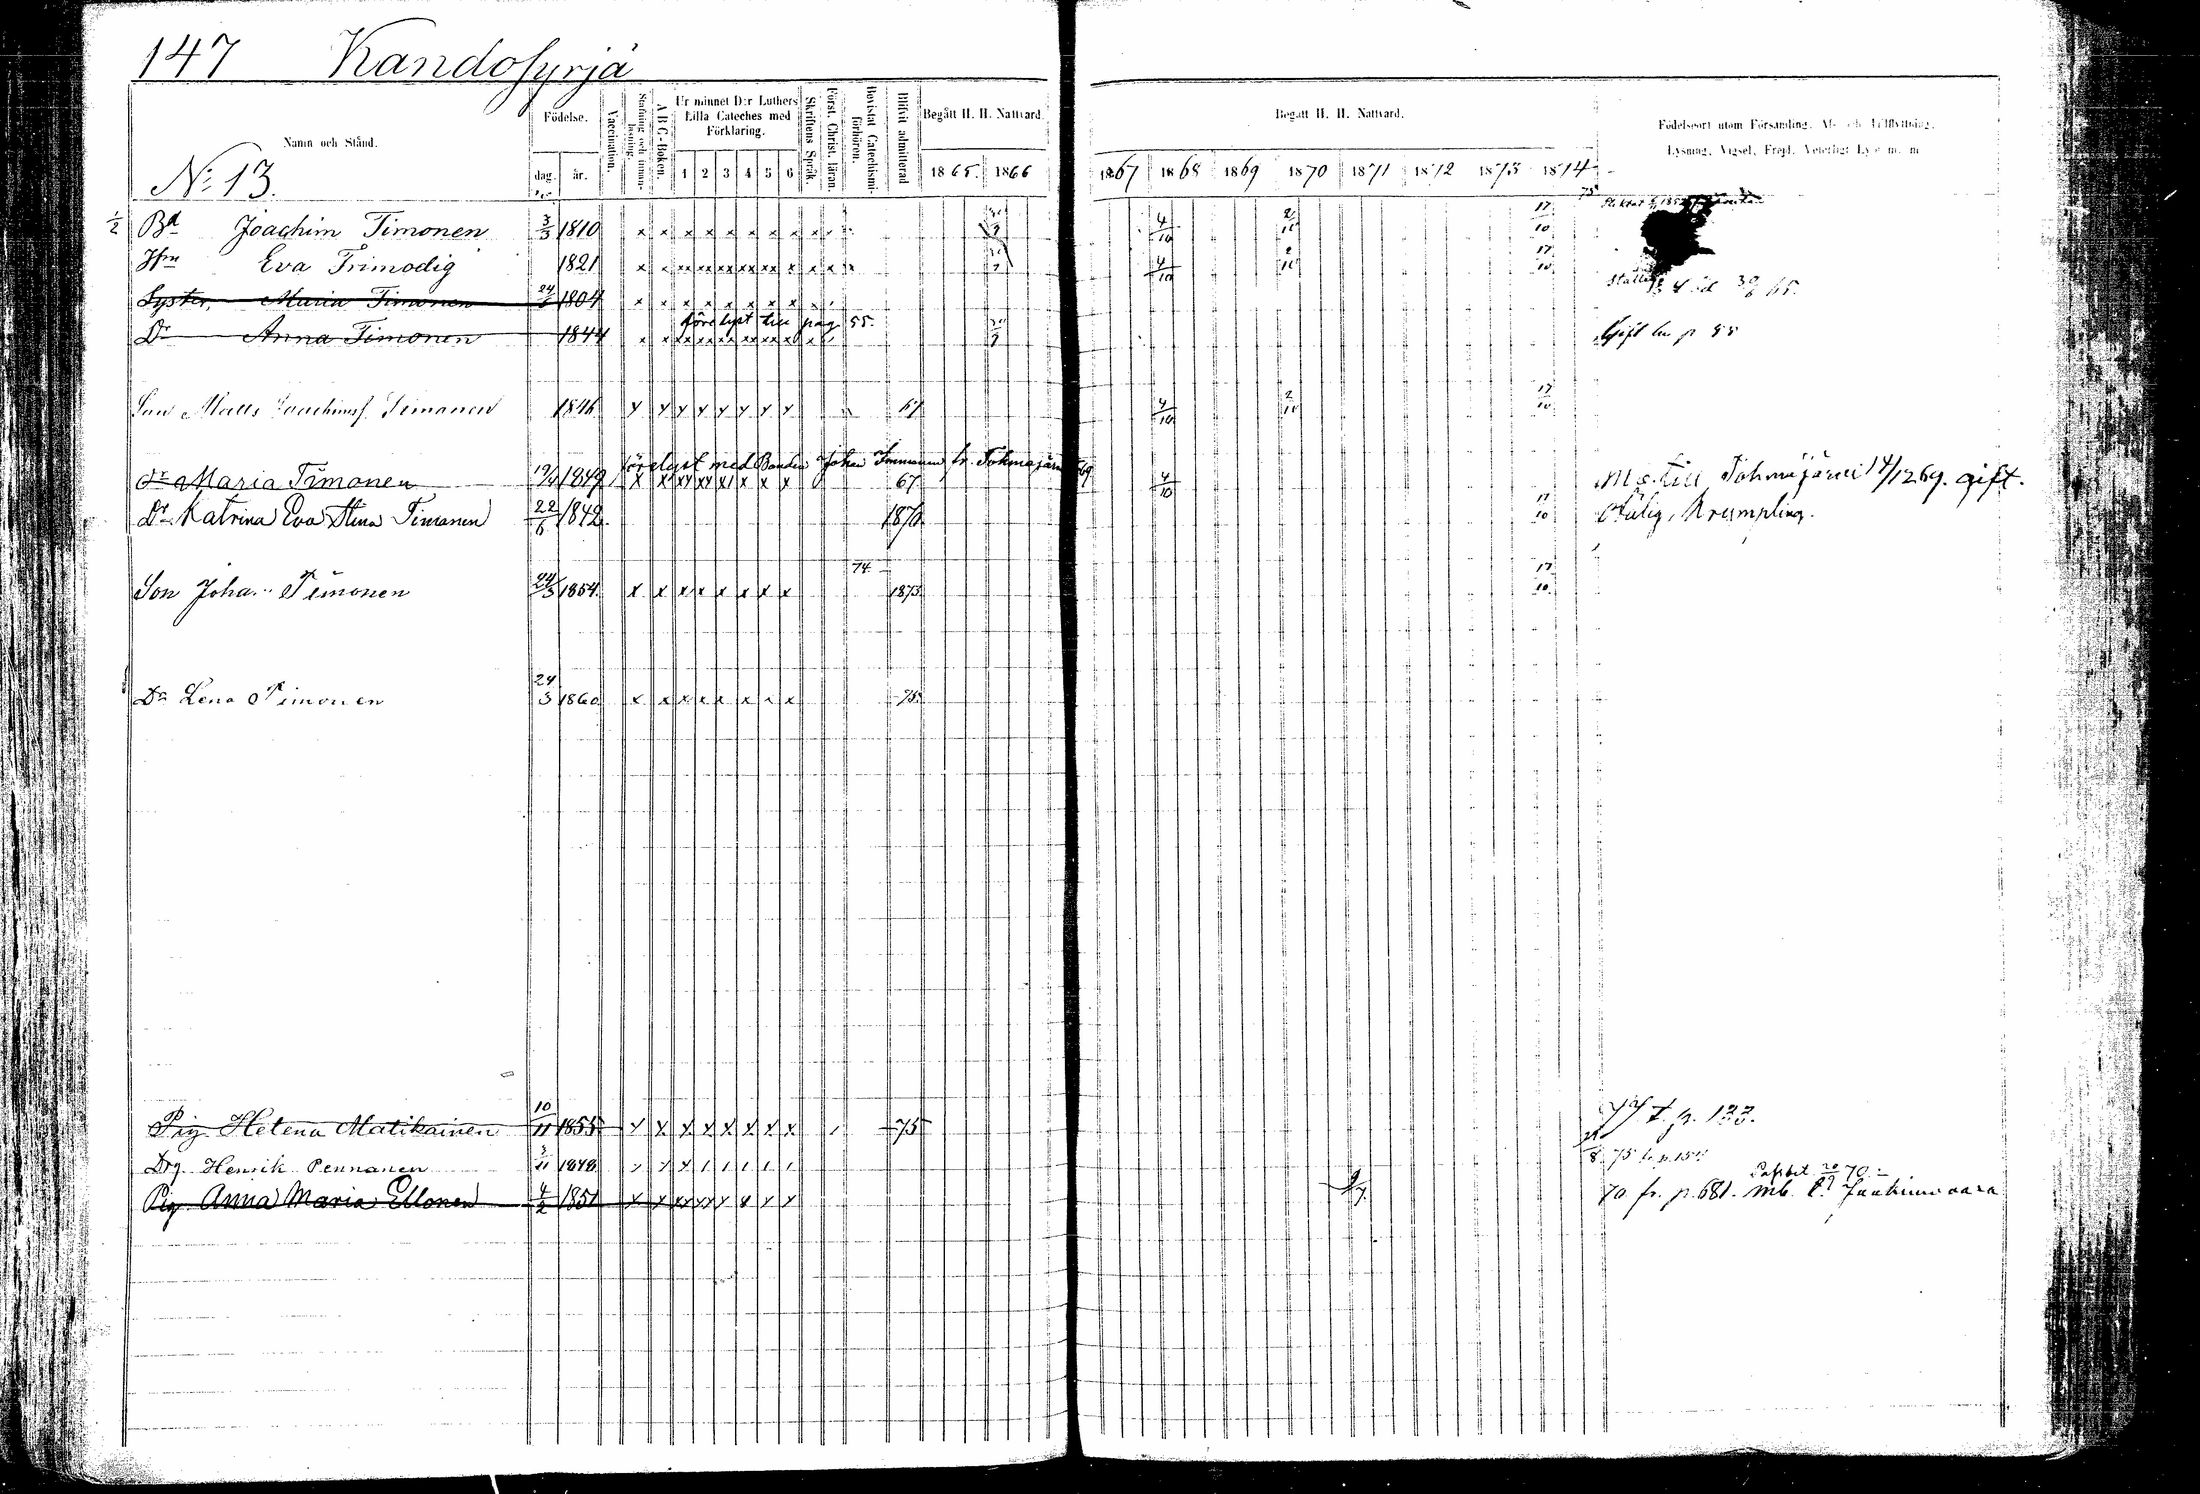 147 Kandosyrjä
Namn och Stånd.
Födelse.
dag. år.
Vaccination.
A B C-Boken.
Ur minnet D:r Luthers
Lilla Cateches med
Förklaring.
1 2 3 4 5 6
Skriftens Språk.
Först. Christ. läran.
Bevistat Catechismi-
förhören.
Blifvit admitterad
Begått H. H. Nattvard.
1865. 1866
Begått H. H. Nattvard.
1867 1868 1869 1870 1871 1872 1873 1874
75
Födelseort utom Församling. Af- och Tillflyttning.
Lysning, Vigsel, Frejd
No 13.
1/2 Bd Joachim Timonen 3/3 1810 4/10 2/11 17/10
Hfru Eva Trimodig 1821 4/10 2/11 17/10
Syster, Maria Timonen 24/ 1804 30/6 65.
förelyst till pag. 55.
Dr Anna Timonen 1844 Gift p 55
Son Matts Joachimsf. Timonen 1846 67 4/10 2/11 17/10
förelyst med Bonden Johan fr. Tohmajärvi 69
Dr Maria Timonen 19/ 1849 67 4/10 Ms. till Tohmajärvi 14/12 69. gift.
Dr Katrina Eva Stina Timonen 22/6 1842. 1870 17/10 Ofälig, Krympling.
74
Son Joha Timonen 24/3 1854. 1873 17/10
Dr Lena Timonen 24/3 1860 75
Pig. Helena Matikainen 10/11 1855 75 77 t. p. 133.
Drg. Henrik Pennanen 3/11 1848 8 75 fr. p. 154
20/ 70
Pig Anna Maria Ellonen 4/2 1851 70 fr. p. 681. mb. Jaakimvaara